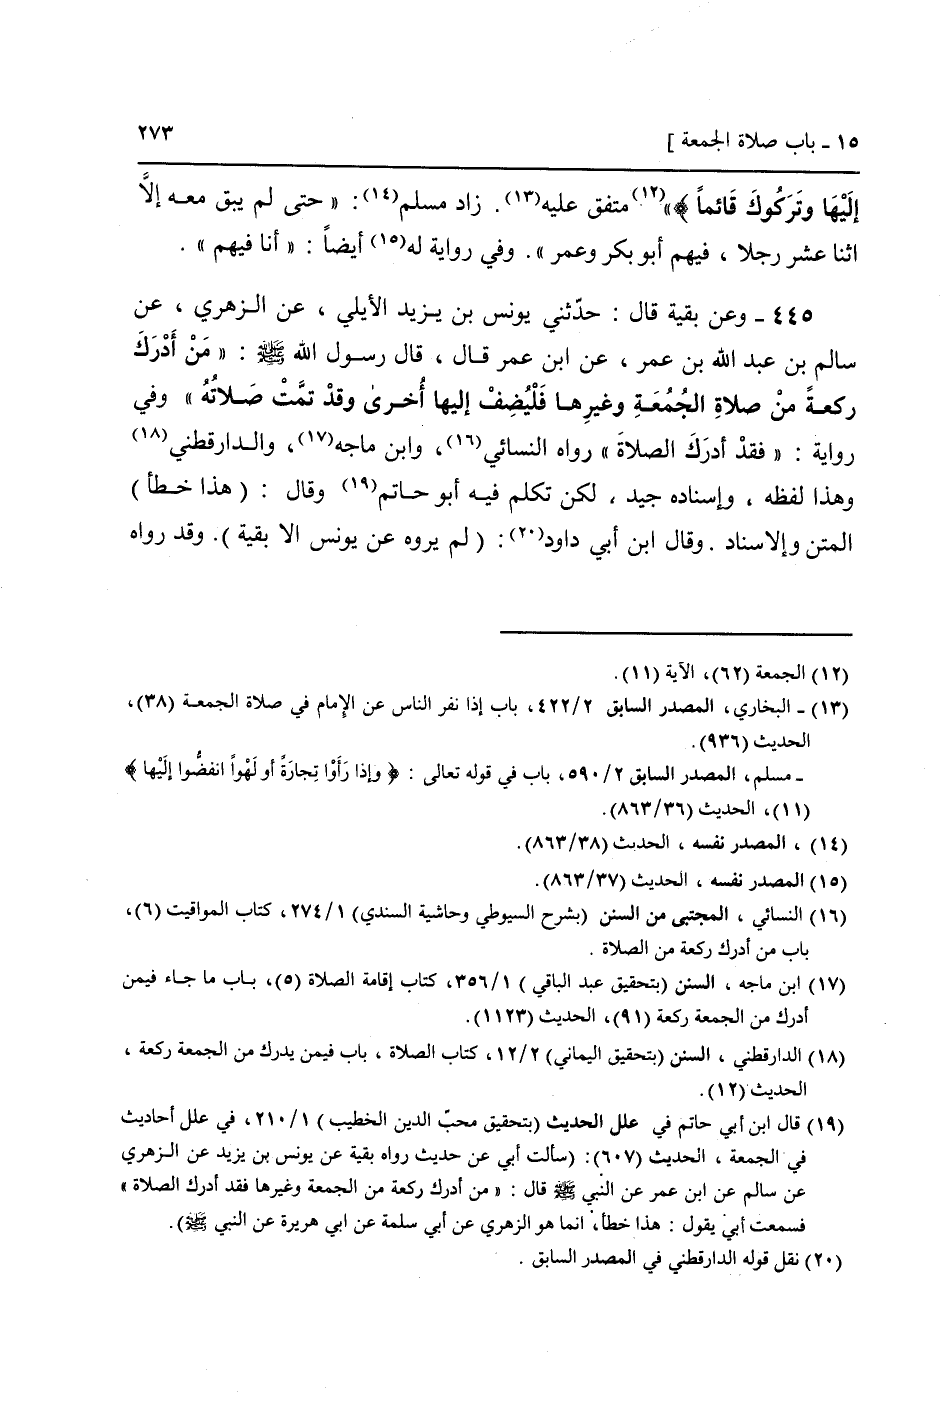 ١٥ ـ باب صلاة الجمعة ] ٢٧٣
إلَيْهَا وتَرَكُوكَ قَائماً ﴾»(١٢) متفق عليه(١٣). زاد مسلم(١٤): « حتى لم يبق معـه إلاَّ
اثنا عشر رجلا ، فيهم أبو بكر وعمر ». وفي رواية له(١٥) أيضاً : « أنا فيهم » .
٤٤٥ ـ وعن بقية قال : حدّثني يونس بن يـزيد الأيلي ، عن الـزهري ، عن
سالم بن عبد الله بن عمر ، عن ابن عمر قـال ، قال رسـول الله ﷺ : « مَنْ أَدْرَكَ
ركعـةً منْ صلاةِ الجُمُعَةِ وغيرِهـا فَلْيُضِفْ إليها أُخـرىٰ وقدْ تمَّتْ صَـلاتُهُ » وفي
رواية : « فقدْ أدرَكَ الصلاةَ » رواه النسائي(١٦)، وابن ماجه(١٧)، والـدارقطني(١٨)
وهذا لفظه ، وإسناده جيد ، لكن تكلم فيـه أبو حـاتم(١٩) وقال : ( هذا خـطأ )
المتن وإلاسناد . وقال ابن أبي داود(٢٠): ( لم يروه عن يونس الا بقية ). وقد رواه
(١٢) الجمعة (٦٢)، الآية (١١).
(١٣) ـ البخاري، المصدر السابق ٤٢٢/٢، باب إذا نفر الناس عن الإمام في صلاة الجمعـة (٣٨)،
الحديث (٩٣٦).
ـ مسلم، المصدر السابق ٥٩٠/٢، باب في قوله تعالى : ﴿ وإذا رَأَوْا تِجارَةً أو لَهْواً انفضُّوا إلَيْها ﴾
(١١)، الحديث (٨٦٣/٣٦).
(١٤) ، المصدر نفسه ، الحديث (٨٦٣/٣٨).
(١٥) المصدر نفسه ، الحديث (٨٦٣/٣٧).
(١٦) النسائي ، المجتبى من السنن (بشرح السيوطي وحاشية السندي) ٢٧٤/١، كتاب المواقيت (٦)،
باب من أدرك ركعة من الصلاة .
(١٧) ابن ماجه ، السنن (بتحقيق عبد الباقي ) ٣٥٦/١، كتاب إقامة الصلاة (٥)، بـاب ما جـاء فيمن
أدرك من الجمعة ركعة (٩١)، الحديث (١١٢٣).
(١٨) الدارقطني ، السنن (بتحقيق اليماني) ١٢/٢، كتاب الصلاة ، باب فيمن يدرك من الجمعة ركعة ،
الحديث (١٢).
(١٩) قال ابن أبي حاتم في علل الحديث (بتحقيق محبّ الدين الخطيب ) ٢١٠/١، في علل أحاديث
في الجمعة ، الحديث (٦٠٧): (سألت أبي عن حديث رواه بقية عن يونس بن يزيد عن الـزهري
عن سالم عن ابن عمر عن النبي ﷺ قال : « من أدرك ركعة من الجمعة وغيرها فقد أدرك الصلاة »
فسمعت أبي يقول : هذا خطأ، انما هو الزهري عن أبي سلمة عن ابي هريرة عن النبي ﷺ).
(٢٠) نقل قوله الدارقطني في المصدر السابق .